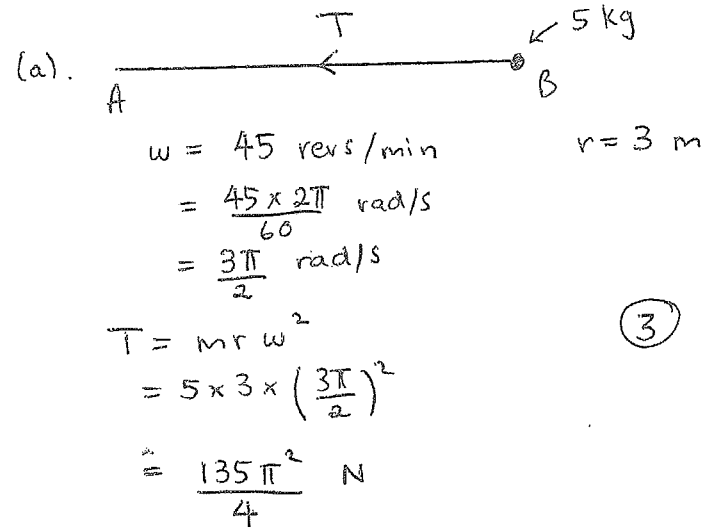 T
5 kg
(a).
A
B
w = 45 revs/min r = 3 m
= 45 x 2π / 60 rad/s
= 3π / 2 rad/s
T = mrw²
③
= 5 x 3 x (3π / 2)²
= 135π² / 4 N